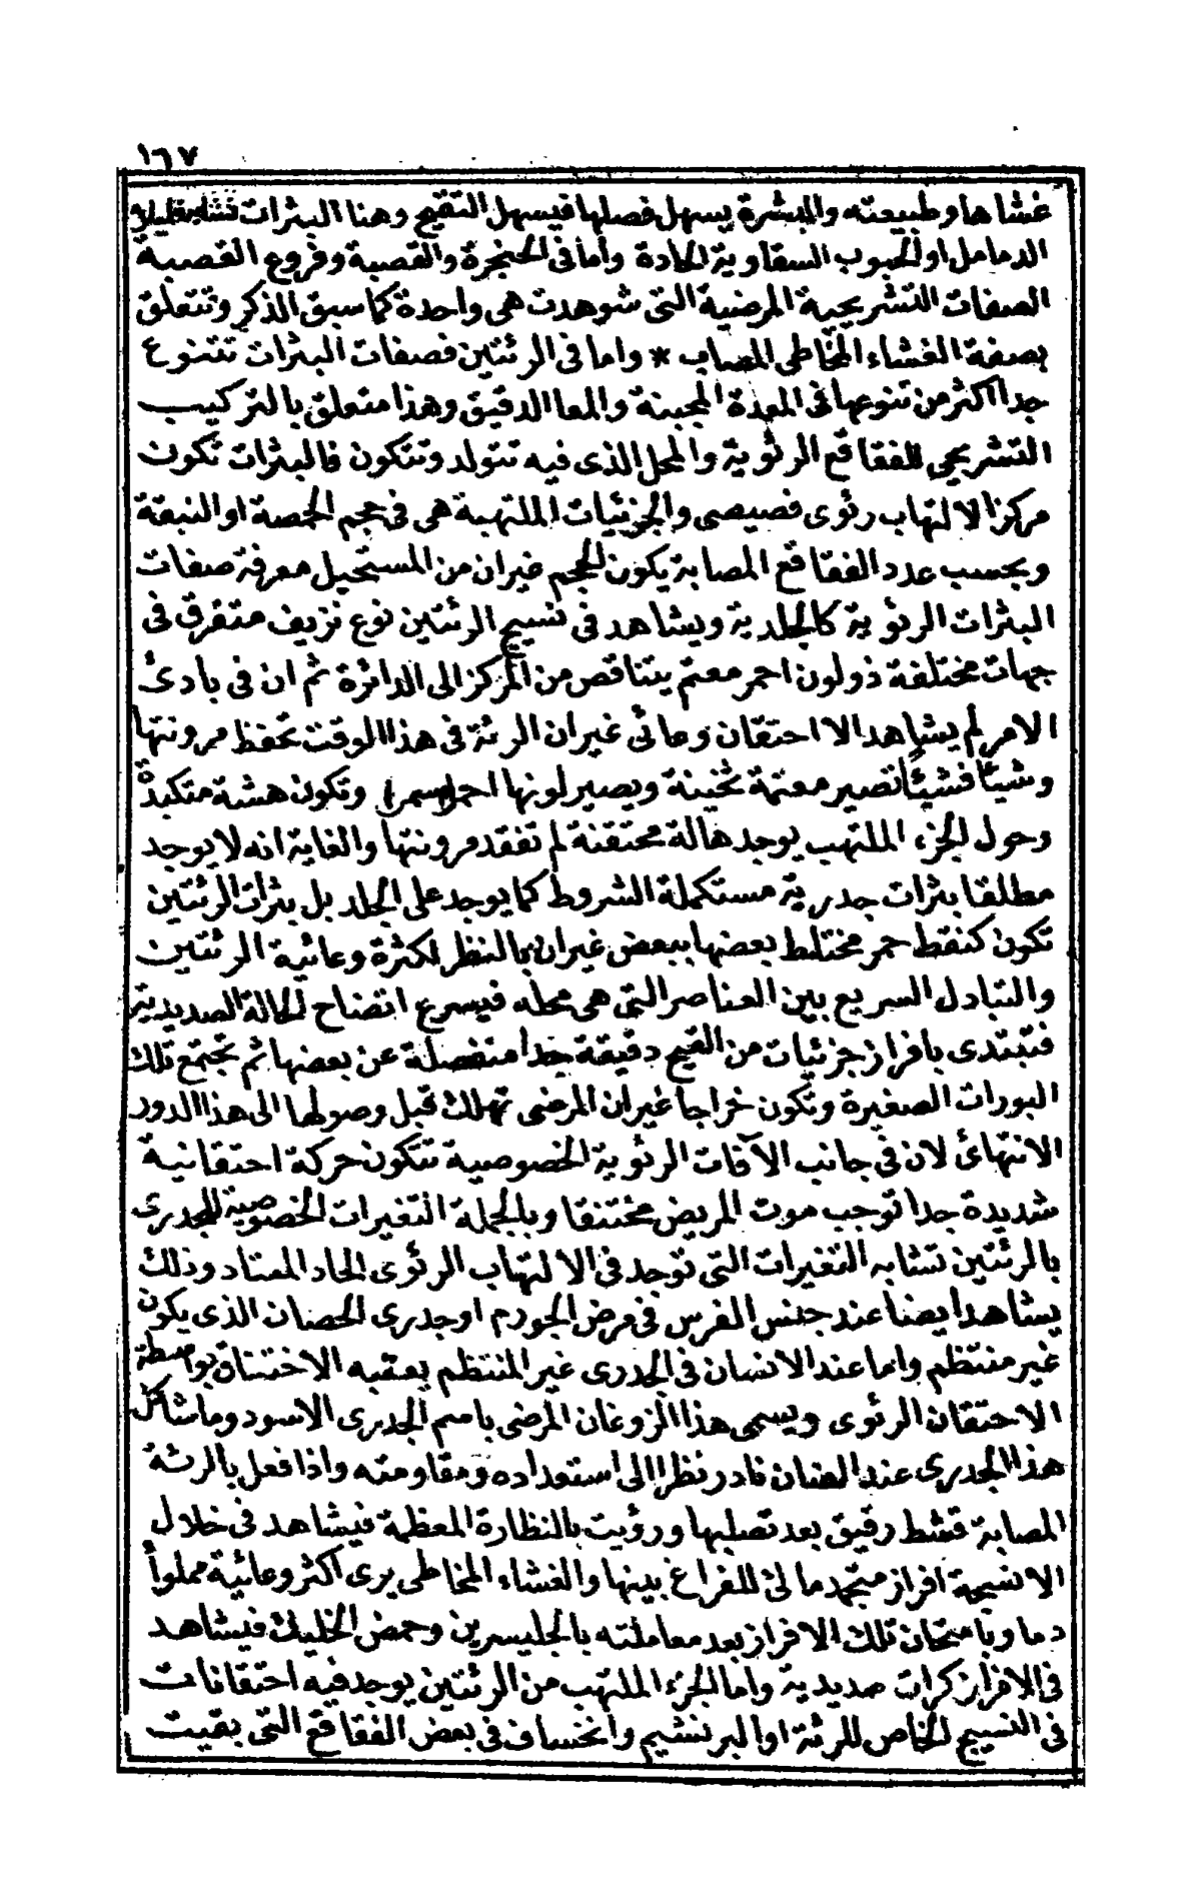 ١٦٧
غشاها وطبيعته والبشرة يسهل فصلها فيسهل التقيح وهنا البثرات تشابه قليلا
الدمامل او الحبوب السقاوية الحادة وأما فى الحنجرة والقصبة وفروع القصبة
الصفات التشريحية المرضية التى شوهدت هى واحدة كما سبق الذكر وتتعلق
بصفة الغشاء المخاطى المصاب * واما فى الرئتين فصفات البثرات تتنوع
جدا اكثر من تنوعها فى المعدة المجبنة والمعا الدقيق وهذا متعلق بالتركيب
التشريحى للفقاقع الرئوية والمحل الذى فيه تتولد وتتكون فالبثرات تكون
مركز الالتهاب رئوى فصيصى والجزئيات الملتهبة هى فى حجم الحمصة او النبقة
وبحسب عدد الفقاقع المصابة يكون الحجم غيران من المستحيل معرفة صفات
البثرات الرئوية كالجلدية ويشاهد فى نسيج الرئتين نوع نزيف متفرق فى
جهات مختلفة ذو لون احمر معتم يتناقص من المركز الى الدائرة ثم ان فى بادئ
الامر لم يشاهد الا احتقان وعائى غيران الرئة فى هذا الوقت تحفظ مرونتها
وشيئا فشيئا تصير معتمة ثخينة ويصير لونها احمر (اسمر) وتكون هشة متكبدة
وحول الجزء الملتهب يوجد هالة محتقنة لم تفقد مرونتها والغاية انه لا يوجد
مطلقا بثرات جدرية مستكملة الشروط كما يوجد على الجلد بل بثرات الرئتين
تكون كنقط حمر مختلط بعضها ببعض غيران بالنظر لكثرة وعائية الرئتين
والتبادل السريع بين العناصر التى هى محله فيسرع اتضاح الحالة الصديدية
فتبتدى بافراز جزئيات من القيح دقيقة جدا منفصلة عن بعضها ثم تجتمع تلك
البورات الصغيرة وتكون خراجا غيران المرضى تهلك قبل وصولها الى هذا الدور
الانتهائ لان فى جانب الآفات الرئوية الخصوصية تتكون حركة احتقانية
شديدة جدا توجب موت المريض مختنقا وبالجملة التغيرات الخصوصية للجدرى
بالرئتين تشابه التغيرات التى توجد فى الالتهاب الرئوى الحاد المعتاد وذلك
يشاهد ايضا عند جنس الفرس فى مرض الجورم او جدرى الحصان الذى يكون
غير منتظم واما عند الانسان فى الجدرى غير المنتظم يعقبه الاختناق بواسطة
الاحتقان الرئوى ويسمى هذا الزوغان المرضى باسم الجدرى الاسود وما شاكل
هذا الجدرى عند الضان نادر نظرا الى استعداده ومقاومته واذا فعل بالرئة
المصابة قشط رقيق بعد تصلبها ورؤيت بالنظارة المعظمة فيشاهد فى خلال
الانسجة افراز متجمد مالئ للفراغ بينها والغشاء المخاطى يرى اكثر وعائية مملوأ
دما وبامتحان تلك الافراز بعد معاملته بالجليسرين وحمض الخليك فيشاهد
فى الافراز كرات صديدية واما الجزء الملتهب من الرئتين يوجد فيه احتقانات
فى النسيج الخاص للرئة او البرنشيم وانخساف فى بعض الفقاقع التى بقيت